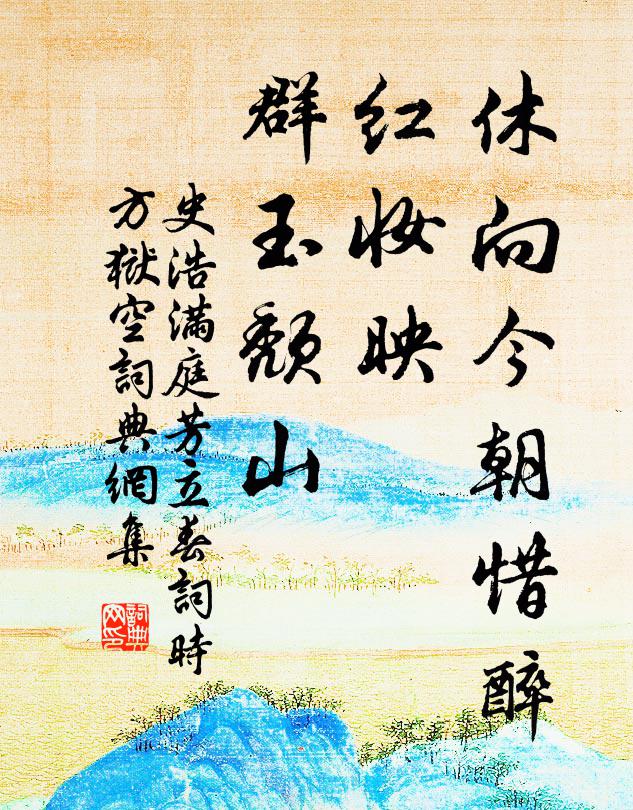 休向今朝惜醉
红妆映
群玉颓山
史浩満庭芳立春詞時
方獄空詞典網集
詞典
网印